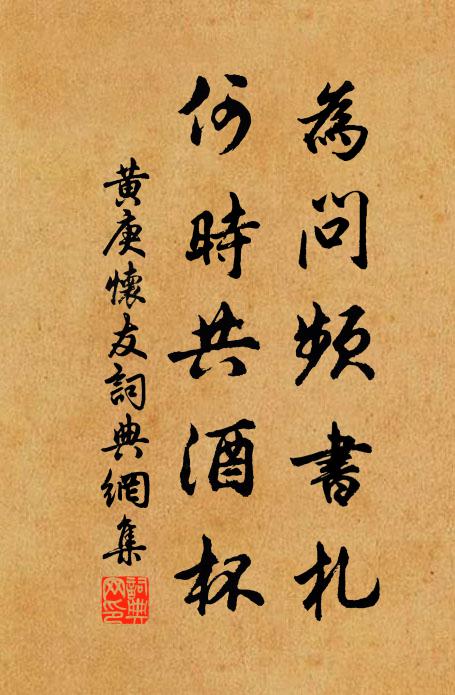 為問頻書札
何時共酒杯
黃庚懷友詞典網集
詞典
网印